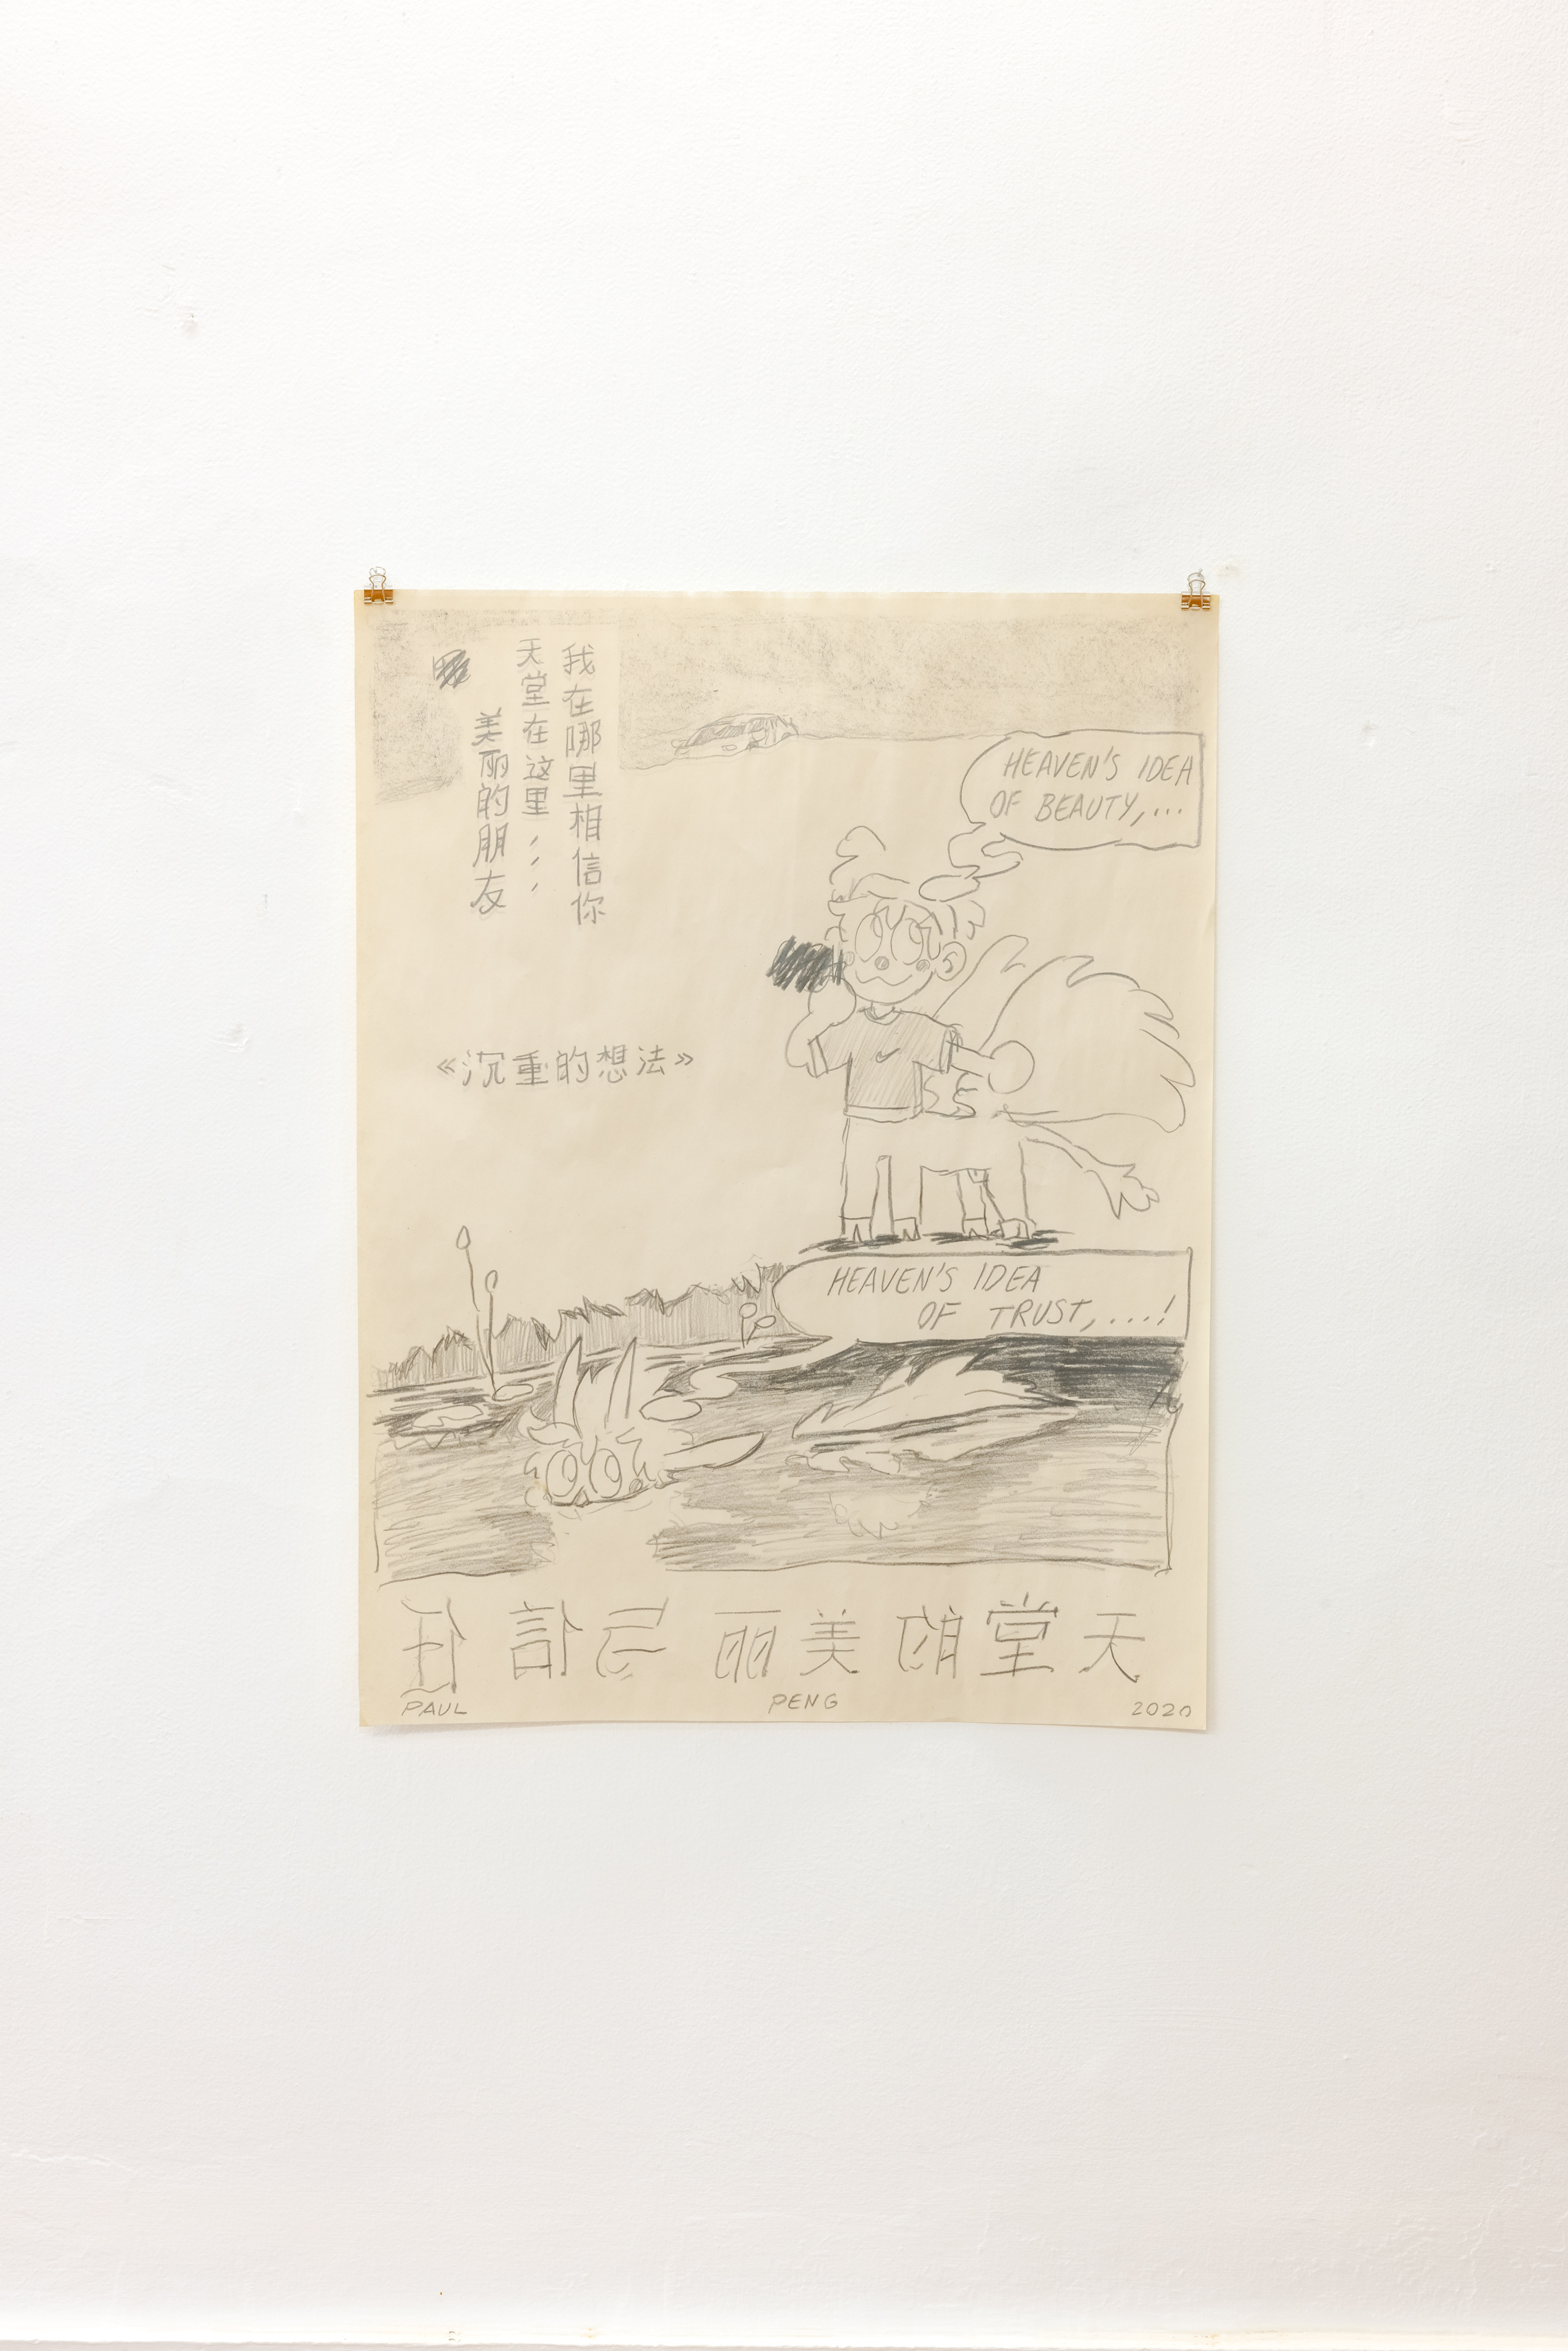 我在哪里相信你
天堂在这里,,,
美丽的朋友
HEAVEN'S IDEA
OF BEAUTY,...
《沉重的想法》
HEAVEN'S IDEA
OF TRUST,....!
天堂的美丽与信任
PAUL PENG 2020